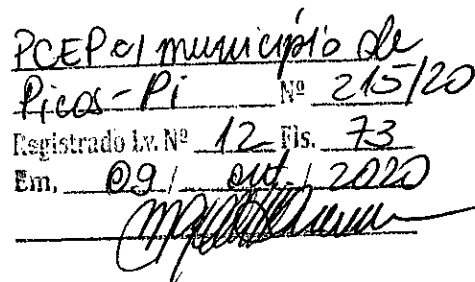 PCEP c/ município de
Picos-Pi Nº 215/20
Registrado Lv. Nº 12 Fls. 73
Em, 09 / out. / 2020